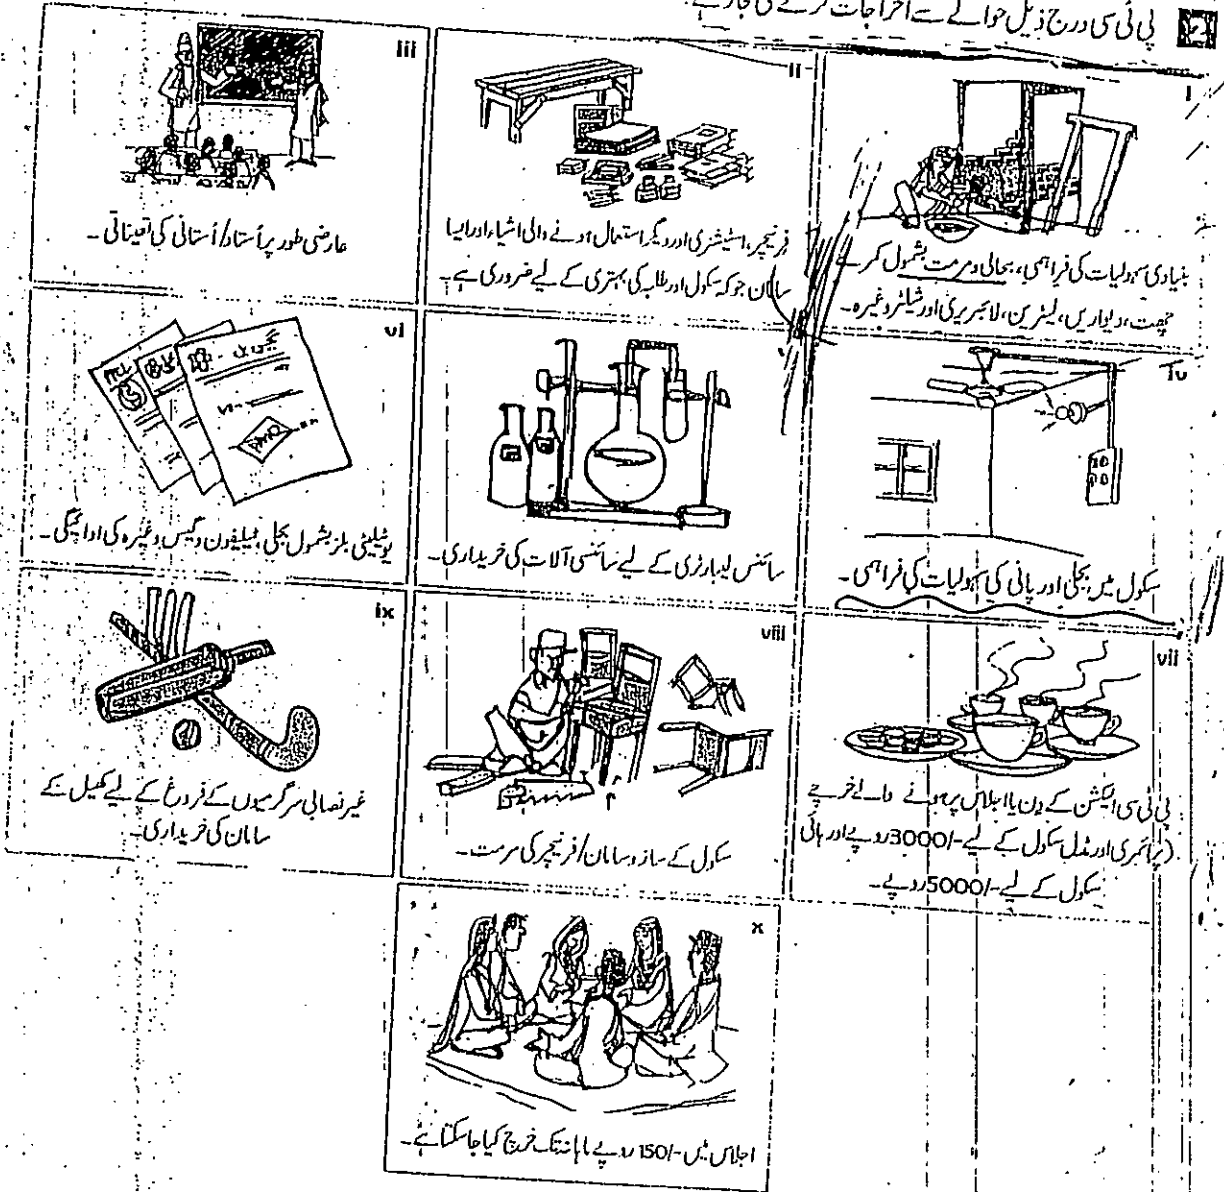 پی ٹی سی درج ذیل حوالے سے اخراجات کرنے کی مجاز ہے۔
i
بنیادی سہولیات کی فراہمی، بحالی ومرمت بشمول کمرے
چھت، دیواریں، لیٹرین، لائبریری اور شیلٹر وغیرہ۔
ii
فرنیچر، اسٹیشنری اور دیگر استعمال ہونے والی اشیاء اور ایسا
سامان جو کہ سکول اور طلبہ کی بہتری کے لیے ضروری ہے۔
iii
عارضی طور پر اُستاد/اُستانی کی تعیناتی۔
iv
سکول میں بجلی اور پانی کی سہولیات کی فراہمی۔
سائنس لیبارٹری کے لیے سائنسی آلات کی خریداری۔
vi
PTCL
یوٹیلیٹی بلز بشمول بجلی، ٹیلیفون وگیس وغیرہ کی ادائیگی۔
vii
پی ٹی سی الیکشن کے دن یا اجلاس پر ہونے والے خرچے
(پرائمری اور مڈل سکول کے لیے -/3000 روپے اور ہائی
سکول کے لیے -/5000 روپے۔
viii
سکول کے سازوسامان/فرنیچر کی مرمت۔
ix
غیر نصابی سرگرمیوں کے فروغ کے لیے کھیل کے
سامان کی خریداری۔
x
اجلاس میں -/150 روپے ماہانہ تک خرچ کیا جا سکتا ہے۔